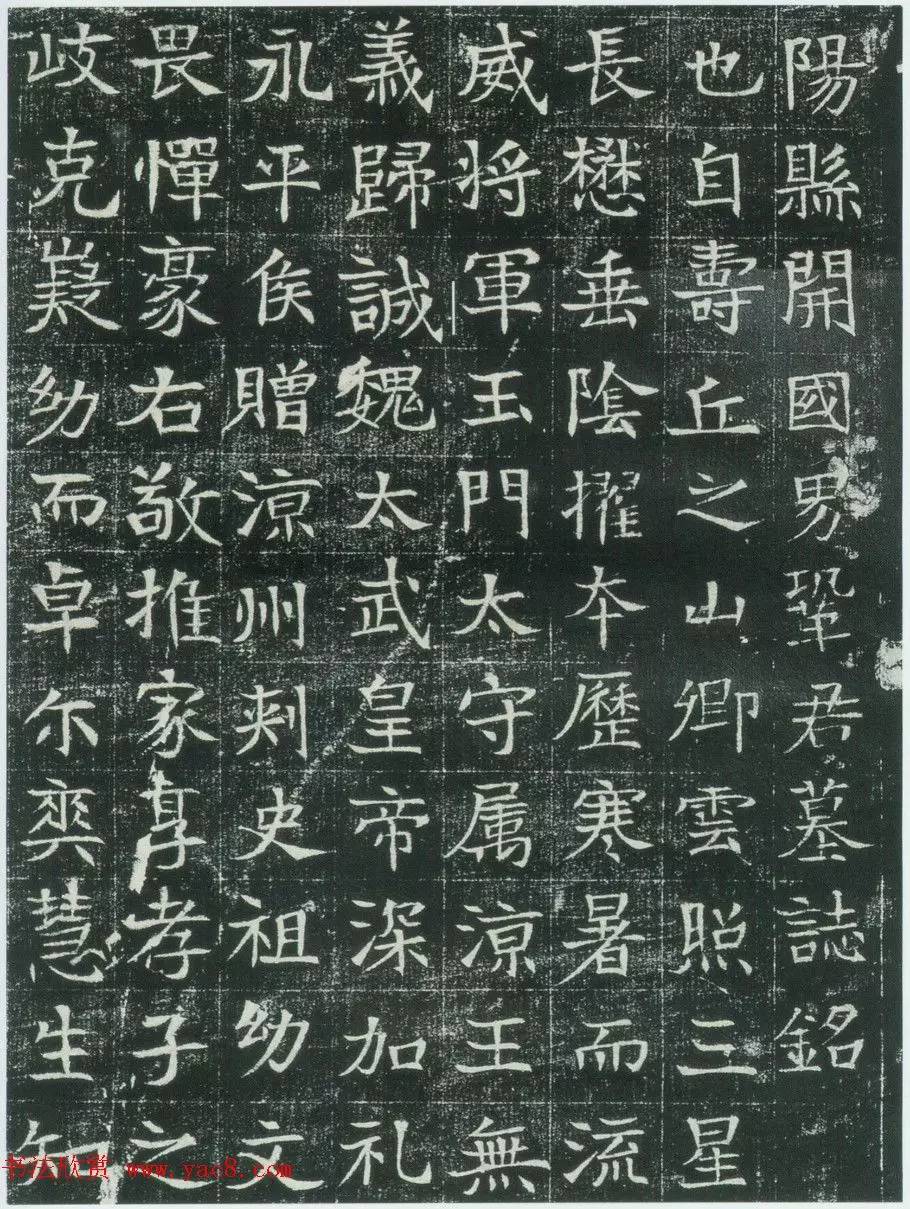 陽縣開國男鞏君墓誌銘
也自壽丘之山卿雲照三星
長懋垂陰擢本歷寒暑而流
威將軍玉門太守属涼王無
義歸誠魏太武皇帝深加礼
永平侯贈涼州刾史祖幼文
畏憚豪右敬推家享孝子之
岐克嶷幼而卓尒奕慧生知
书法欣赏 www.yac8.com